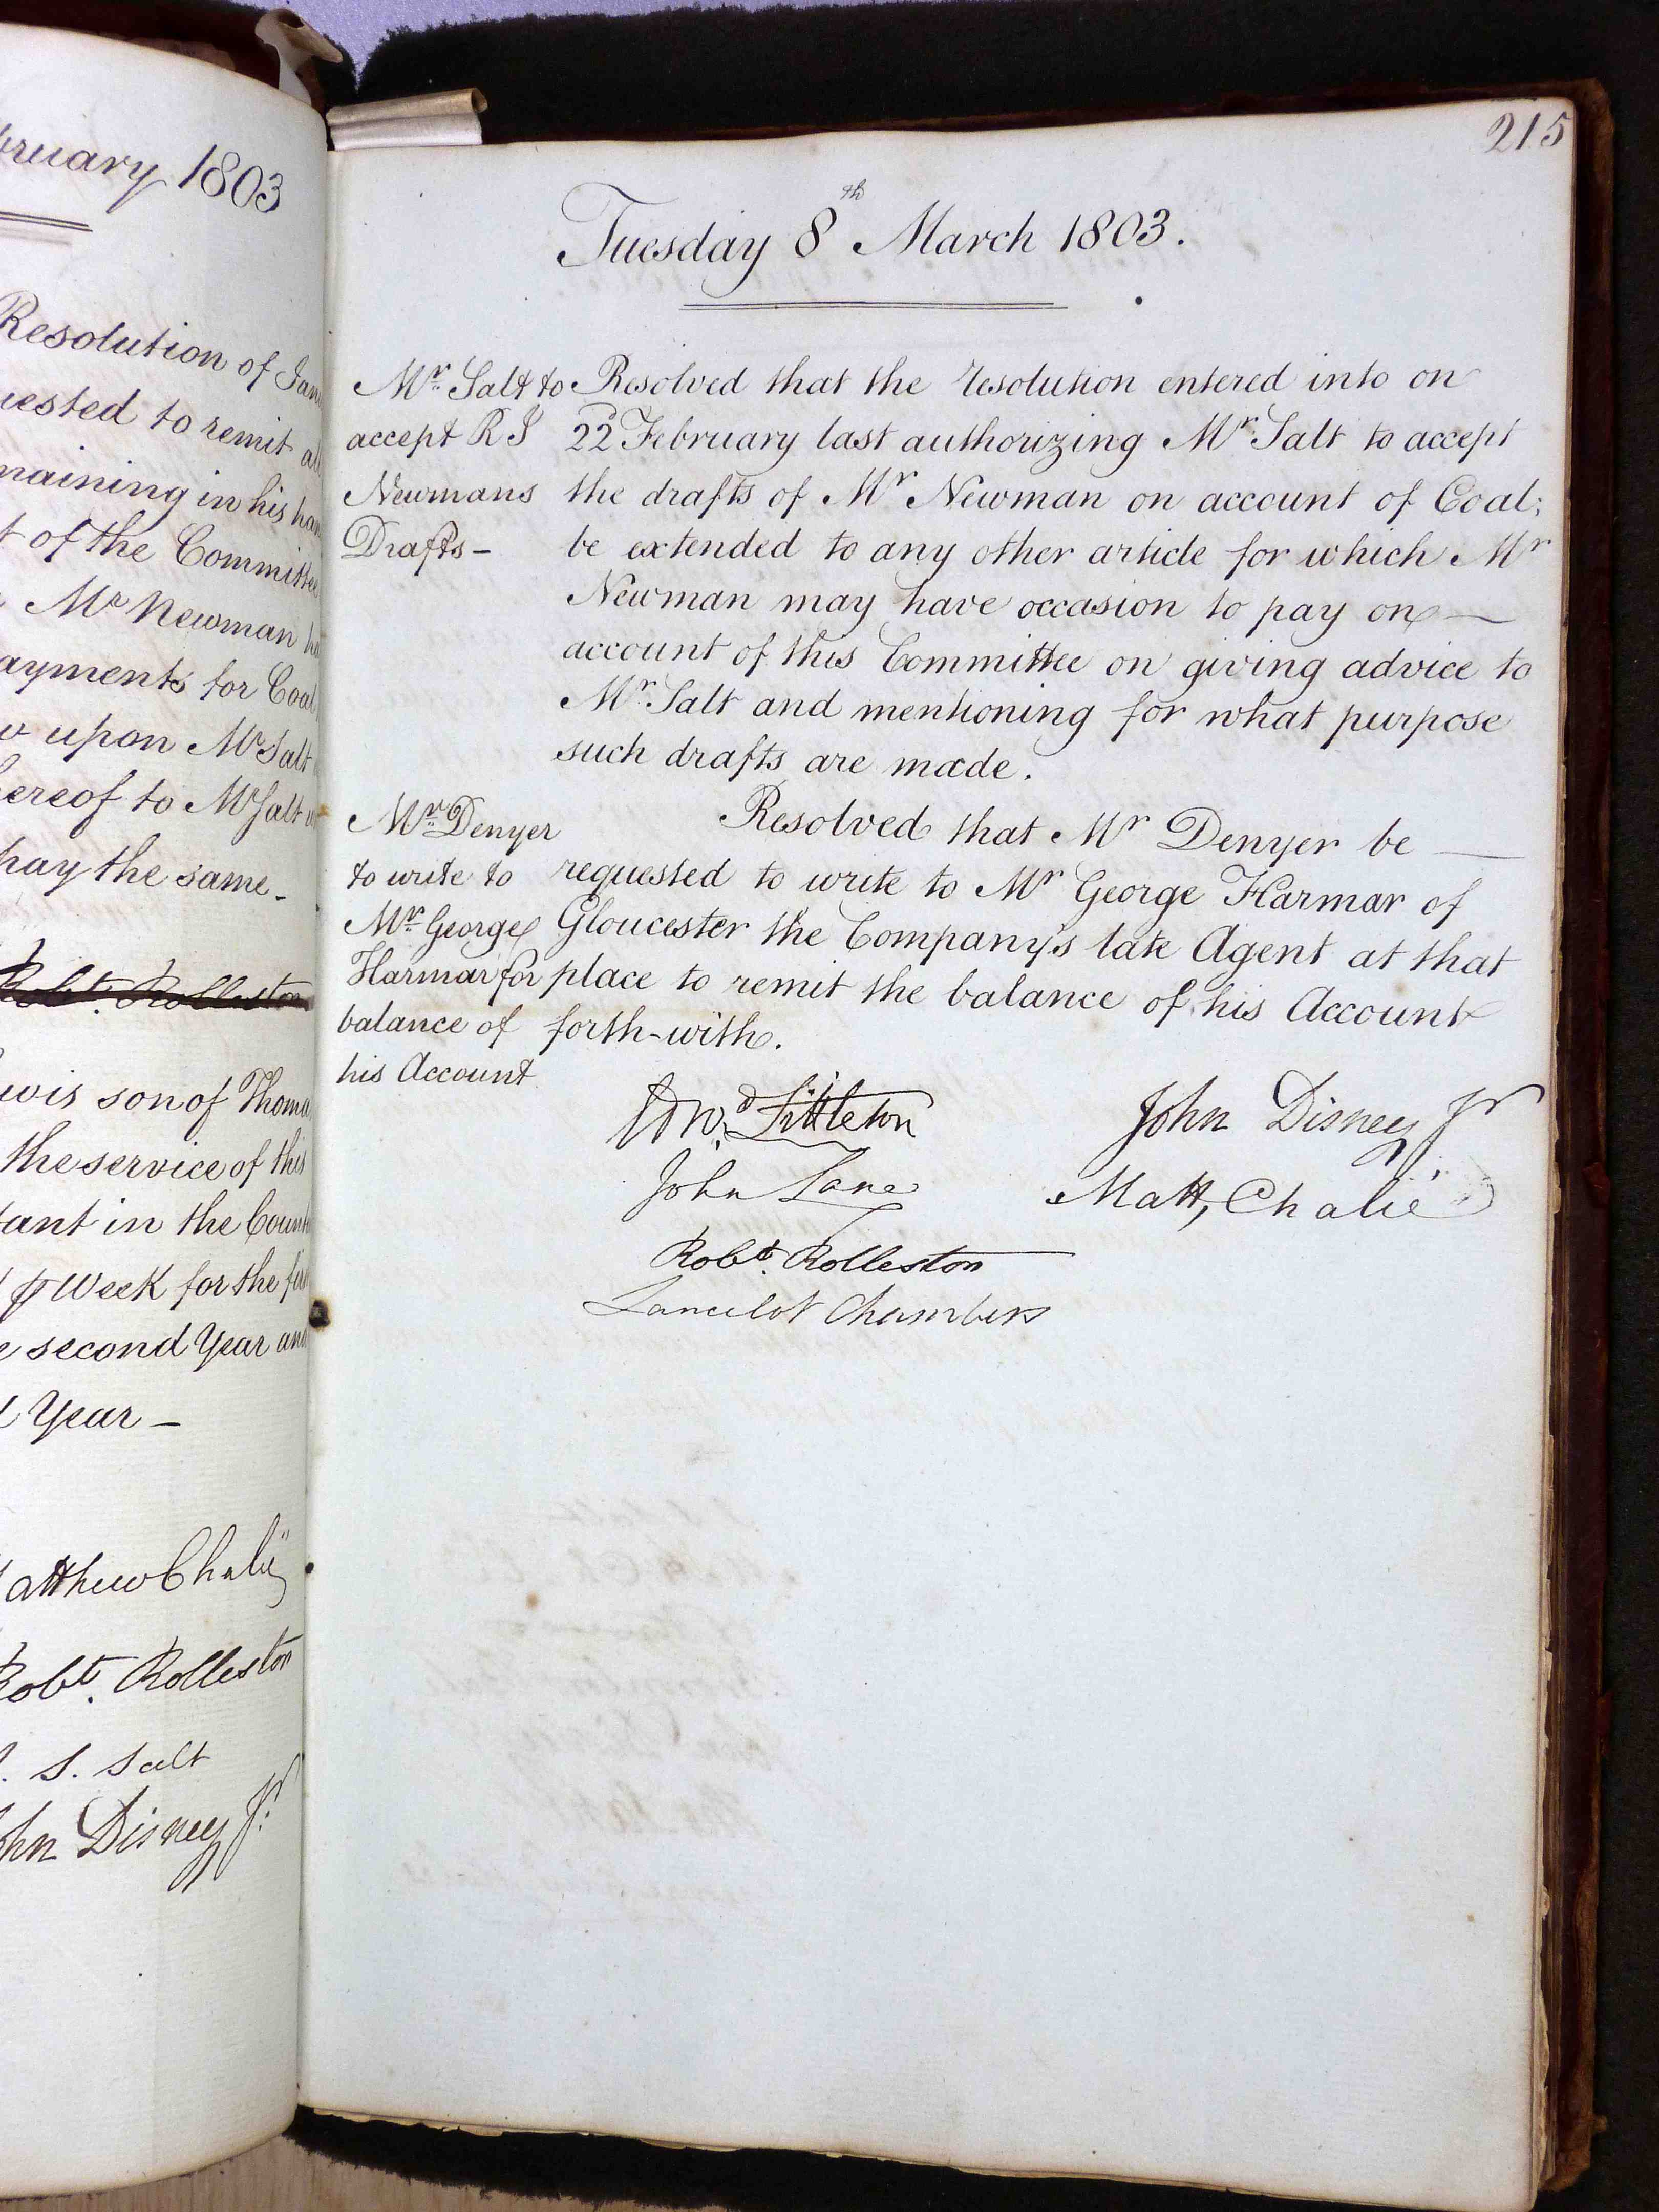 bruary 1803
Resolution of Jan
uested to remit al
maining in his han
t of the Committee
Mr Newman h
ayments for Coal
w upon Mr Salt
hereof to Mr Salt
pay the same -
Robt. Rolleston
wis son of Thoma
the service of this
tant in the Count
Week for the
e second Year and
d Year -
atthew Chalié
Robt. Rolleston
S. Salt
ohn Disney Jr.
215
Tuesday 8th March 1803.
Mr. Salt to
accept R S
Newmans
Drafts -
Resolved that the resolution entered into on
22 February last authorizing Mr. Salt to accept
the drafts of Mr Newman on account of Coal;
be extended to any other article for which Mr
Newman may have occasion to pay on —
account of this Committee on giving advice to
Mr. Salt and mentioning for what purpose
such drafts are made.
Mr. Denyer
to write to
Mr. George
Harmar for
balance of
his Account
Resolved that Mr Denyer be —
requested to write to Mr George Harmar of
Gloucester the Company's late Agent at that
place to remit the balance of his Account
forth-with.
Edwd. Littleton
John Lane
Robt. Rolleston
Lancelot Chambers
John Disney Jr.
Matt, Chalié